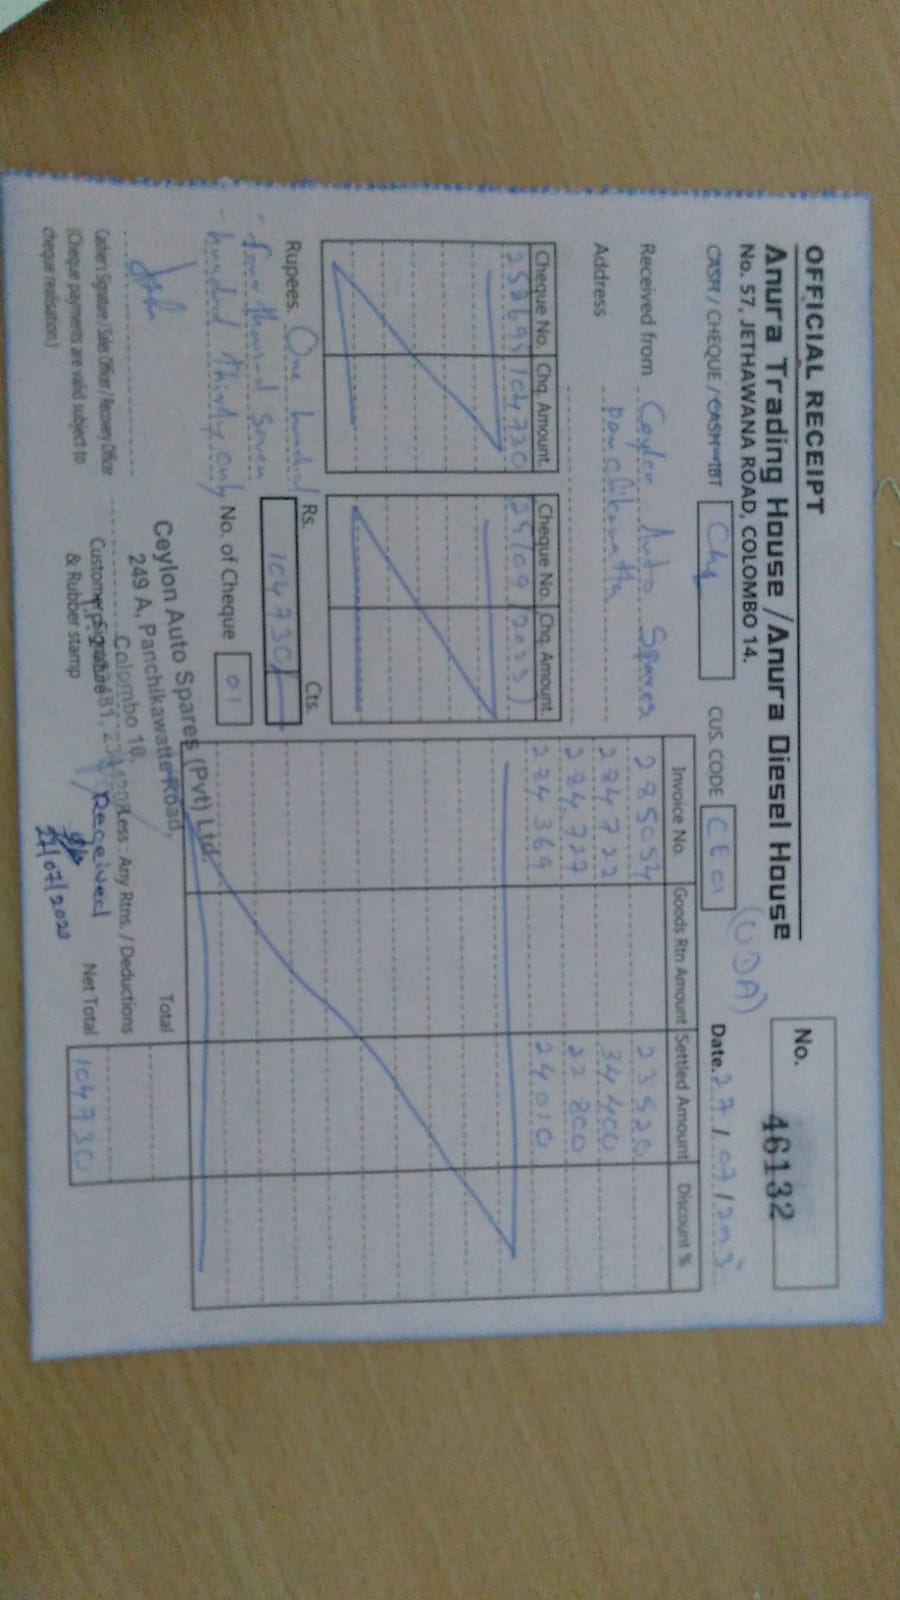 OFFICIAL RECEIPT
Anura Trading House / Anura Diesel House
No. 57, JETHAWANA ROAD, COLOMBO 14.
No. 46132
CASH / CHEQUE / CASH IBT Chq
CUS. CODE CE 01
(UDA)
Date. 27/07/2023
Received from Ceylon Auto Spares
Address Panchikawatta
Cheque No. Chq. Amount.
253695 104730
Cheque No. Chq. Amount.
25/09/2023
Invoice No. Goods Rtn Amount Settled Amount Discount %
285054 23520
284722 34400
284727 22800
284369 24010
Rupees. One hundred
four thousand seven
hundred thirty only
Rs. Cts.
104730/-
No. of Cheque 01
Ceylon Auto Spares (Pvt) Ltd.
249 A, Panchikawatte Road,
Colombo 10.
Total
Less Any Rtns. / Deductions
Net Total 104730
Cashier's Signature / Sales Officer / Recovery Officer
(Cheque payments are valid subject to
cheque realisation.)
Customer Signature
& Rubber stamp
Received
27/07/2023